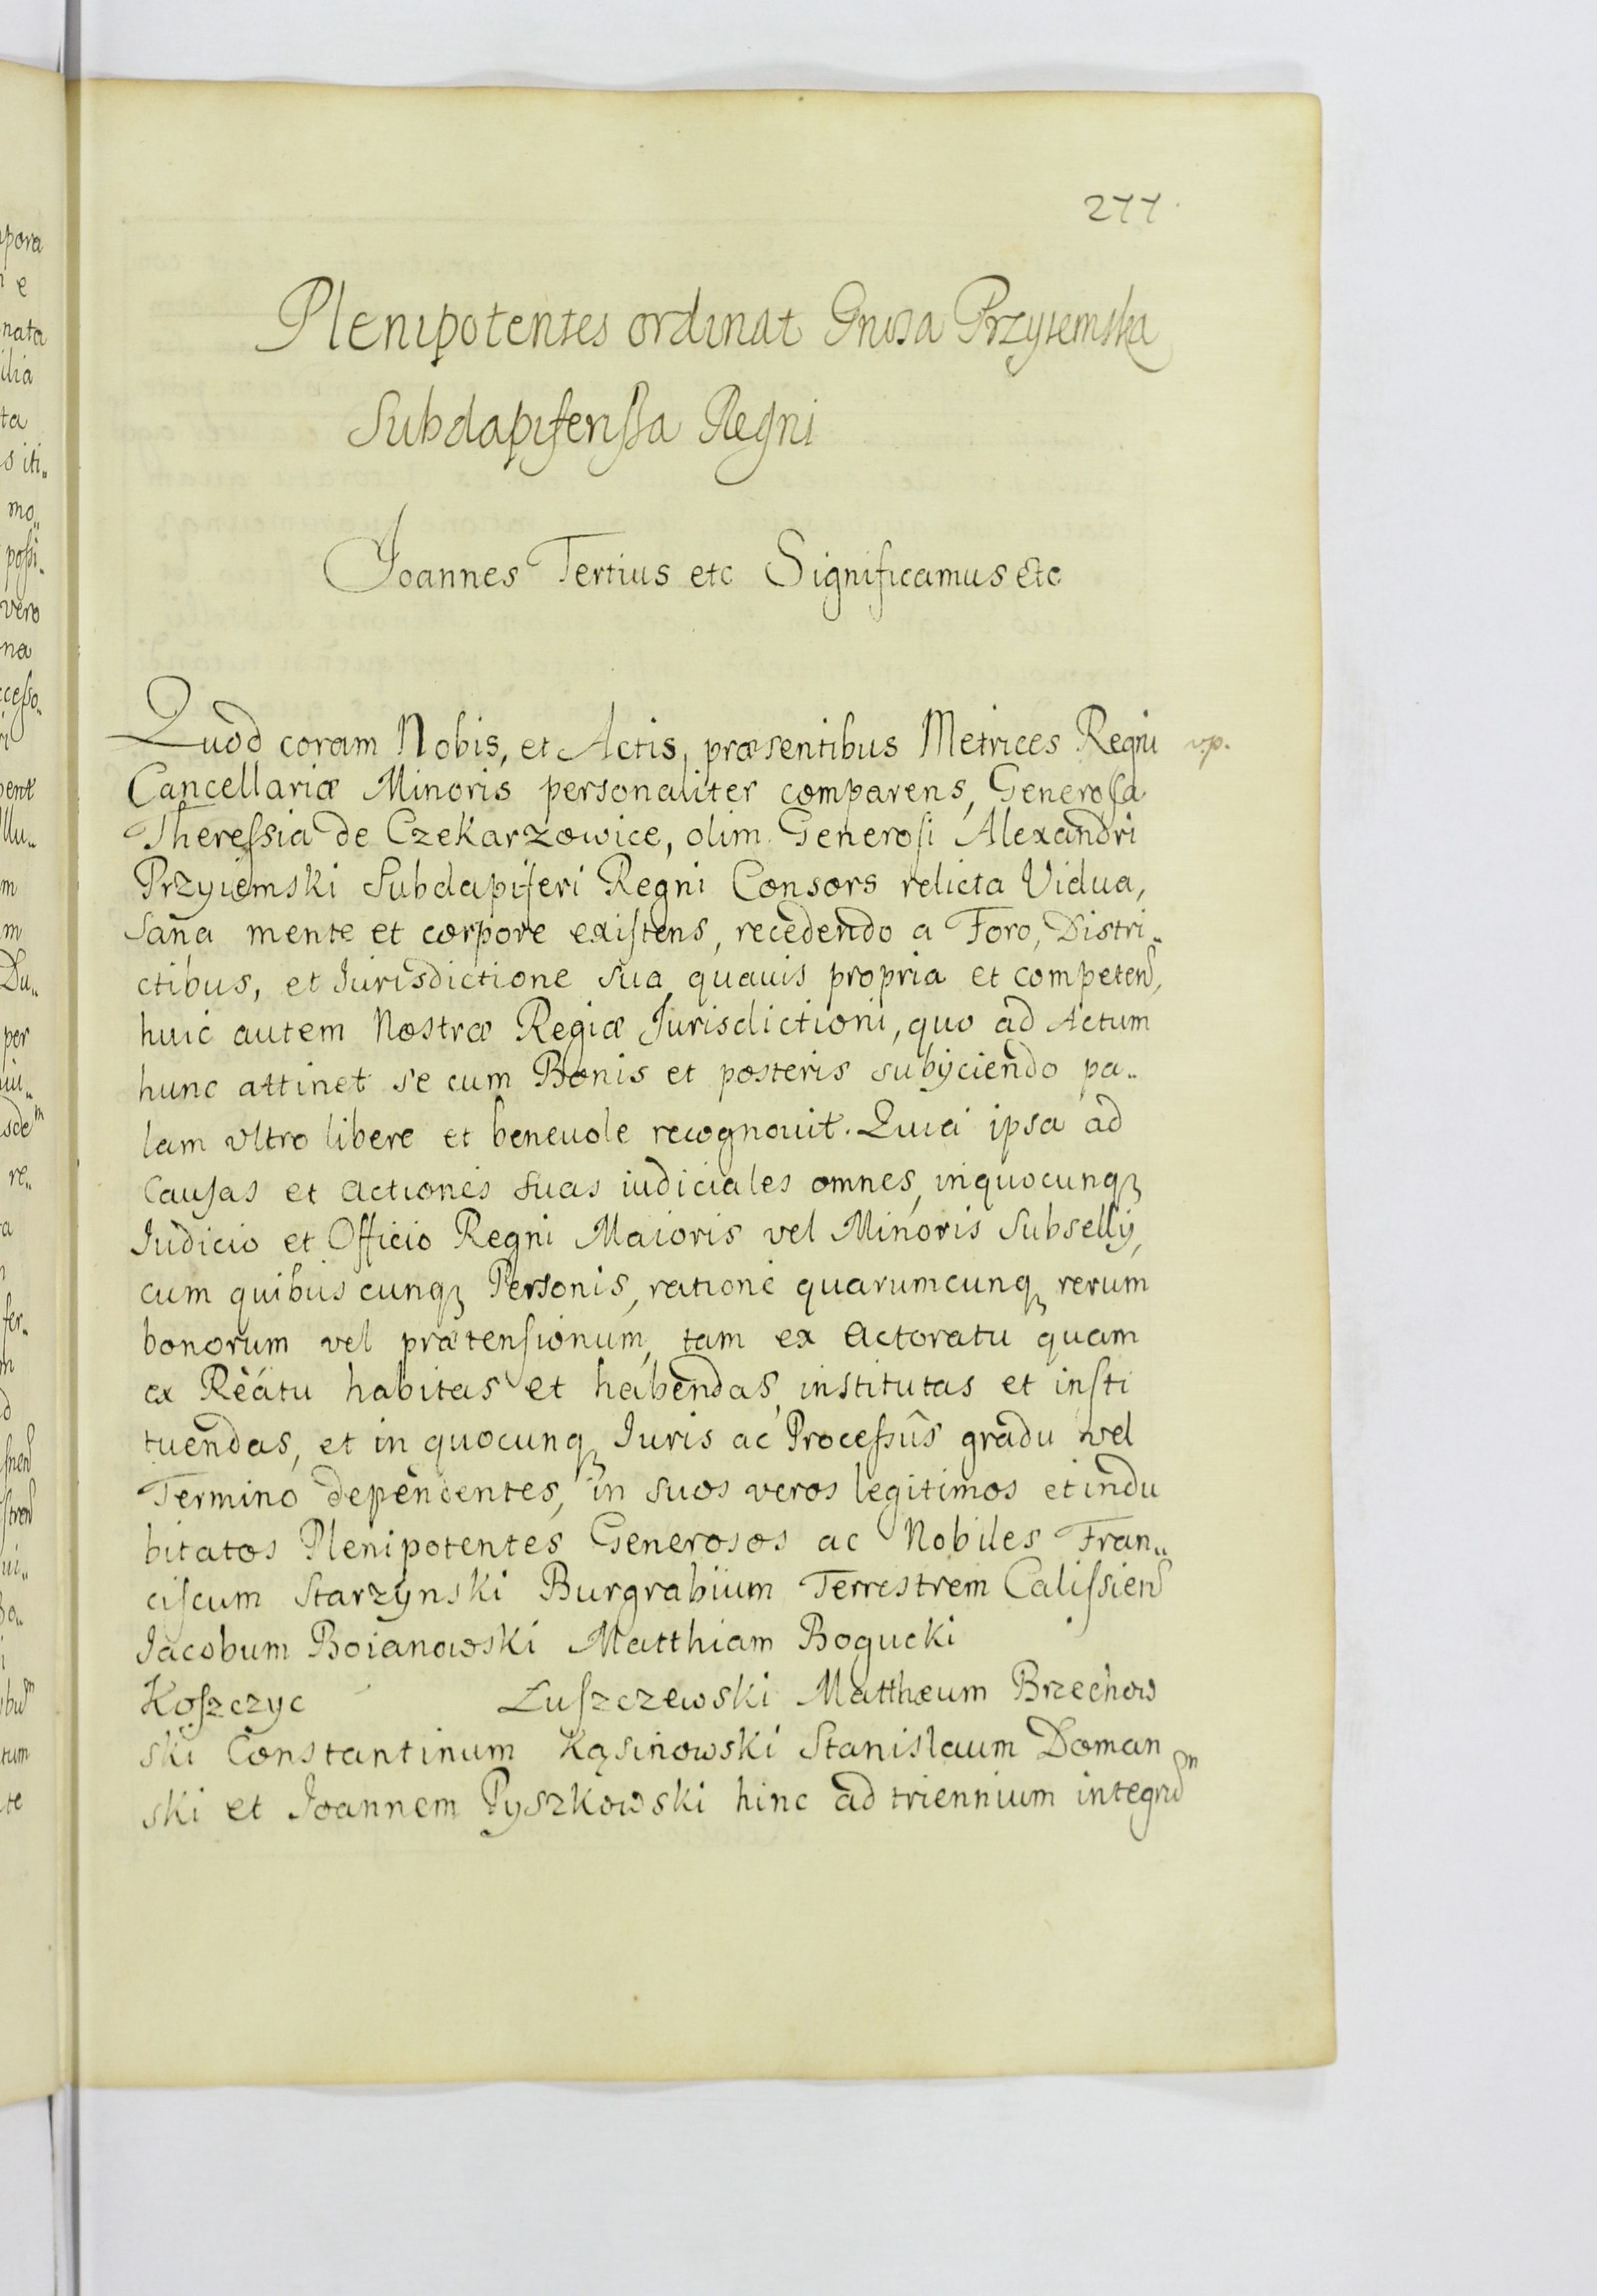 277.
Plenipotentes ordinat Gnosa Przyiemska
Subdapiferißa Regni
Joannes Tertius etc Significamus etc
Quod coram Nobis, et Actis, præsentibus Metrices Regni
vp.
Cancellariæ Minoris personaliter comparens, Generoſa
Thereſsia de Czekarzowice, olim Generoſi Alexandri
Przyiemski Subdapiferi Regni Consors relicta Vidua,
Sana mente et corpore exiſtens, recedendo a Foro, Distri„
ctibus, et Iurisdictione sua quauis propria et competen,
huic autem Nostræ Regiæ Jurisdictioni, quo ad Actum
hunc attinet se cum Bonis et posteris subÿciendo pa„
lam vltro libere et beneuole recognouit. Quia ipsa ad
Cauſas et actiones suas iudiciales omnes, inquocunqꝫ
Iudicio et Officio Regni Maioris vel Minoris Subsellÿ,
cum quibus cunqꝫ Personis, ratione quarumcunqꝫ rerum
bonorum vel prætenſionum, tam ex actoratu quam
ex Reatu habitas et habendas, institutas et inſti
tuendas, et in quocunqꝫ Iuris ac Proceſsûs gradu vel
Termino dependentes, in suos veros legitimos et indu
bitatos Plenipotentes Generosos ac Nobiles Fran„
ciſcum Starzynski Burgrabium Terrestrem Caliſsien
Jacobum Boianowski Matthiam Bogucki
Koſzczyc Łuſzczewski Matthæum Brzechow
ski Constantinum Kąsinowski Stanislaum Doman
ski et Joannem Pyszkowski hinc ad triennium integrũm